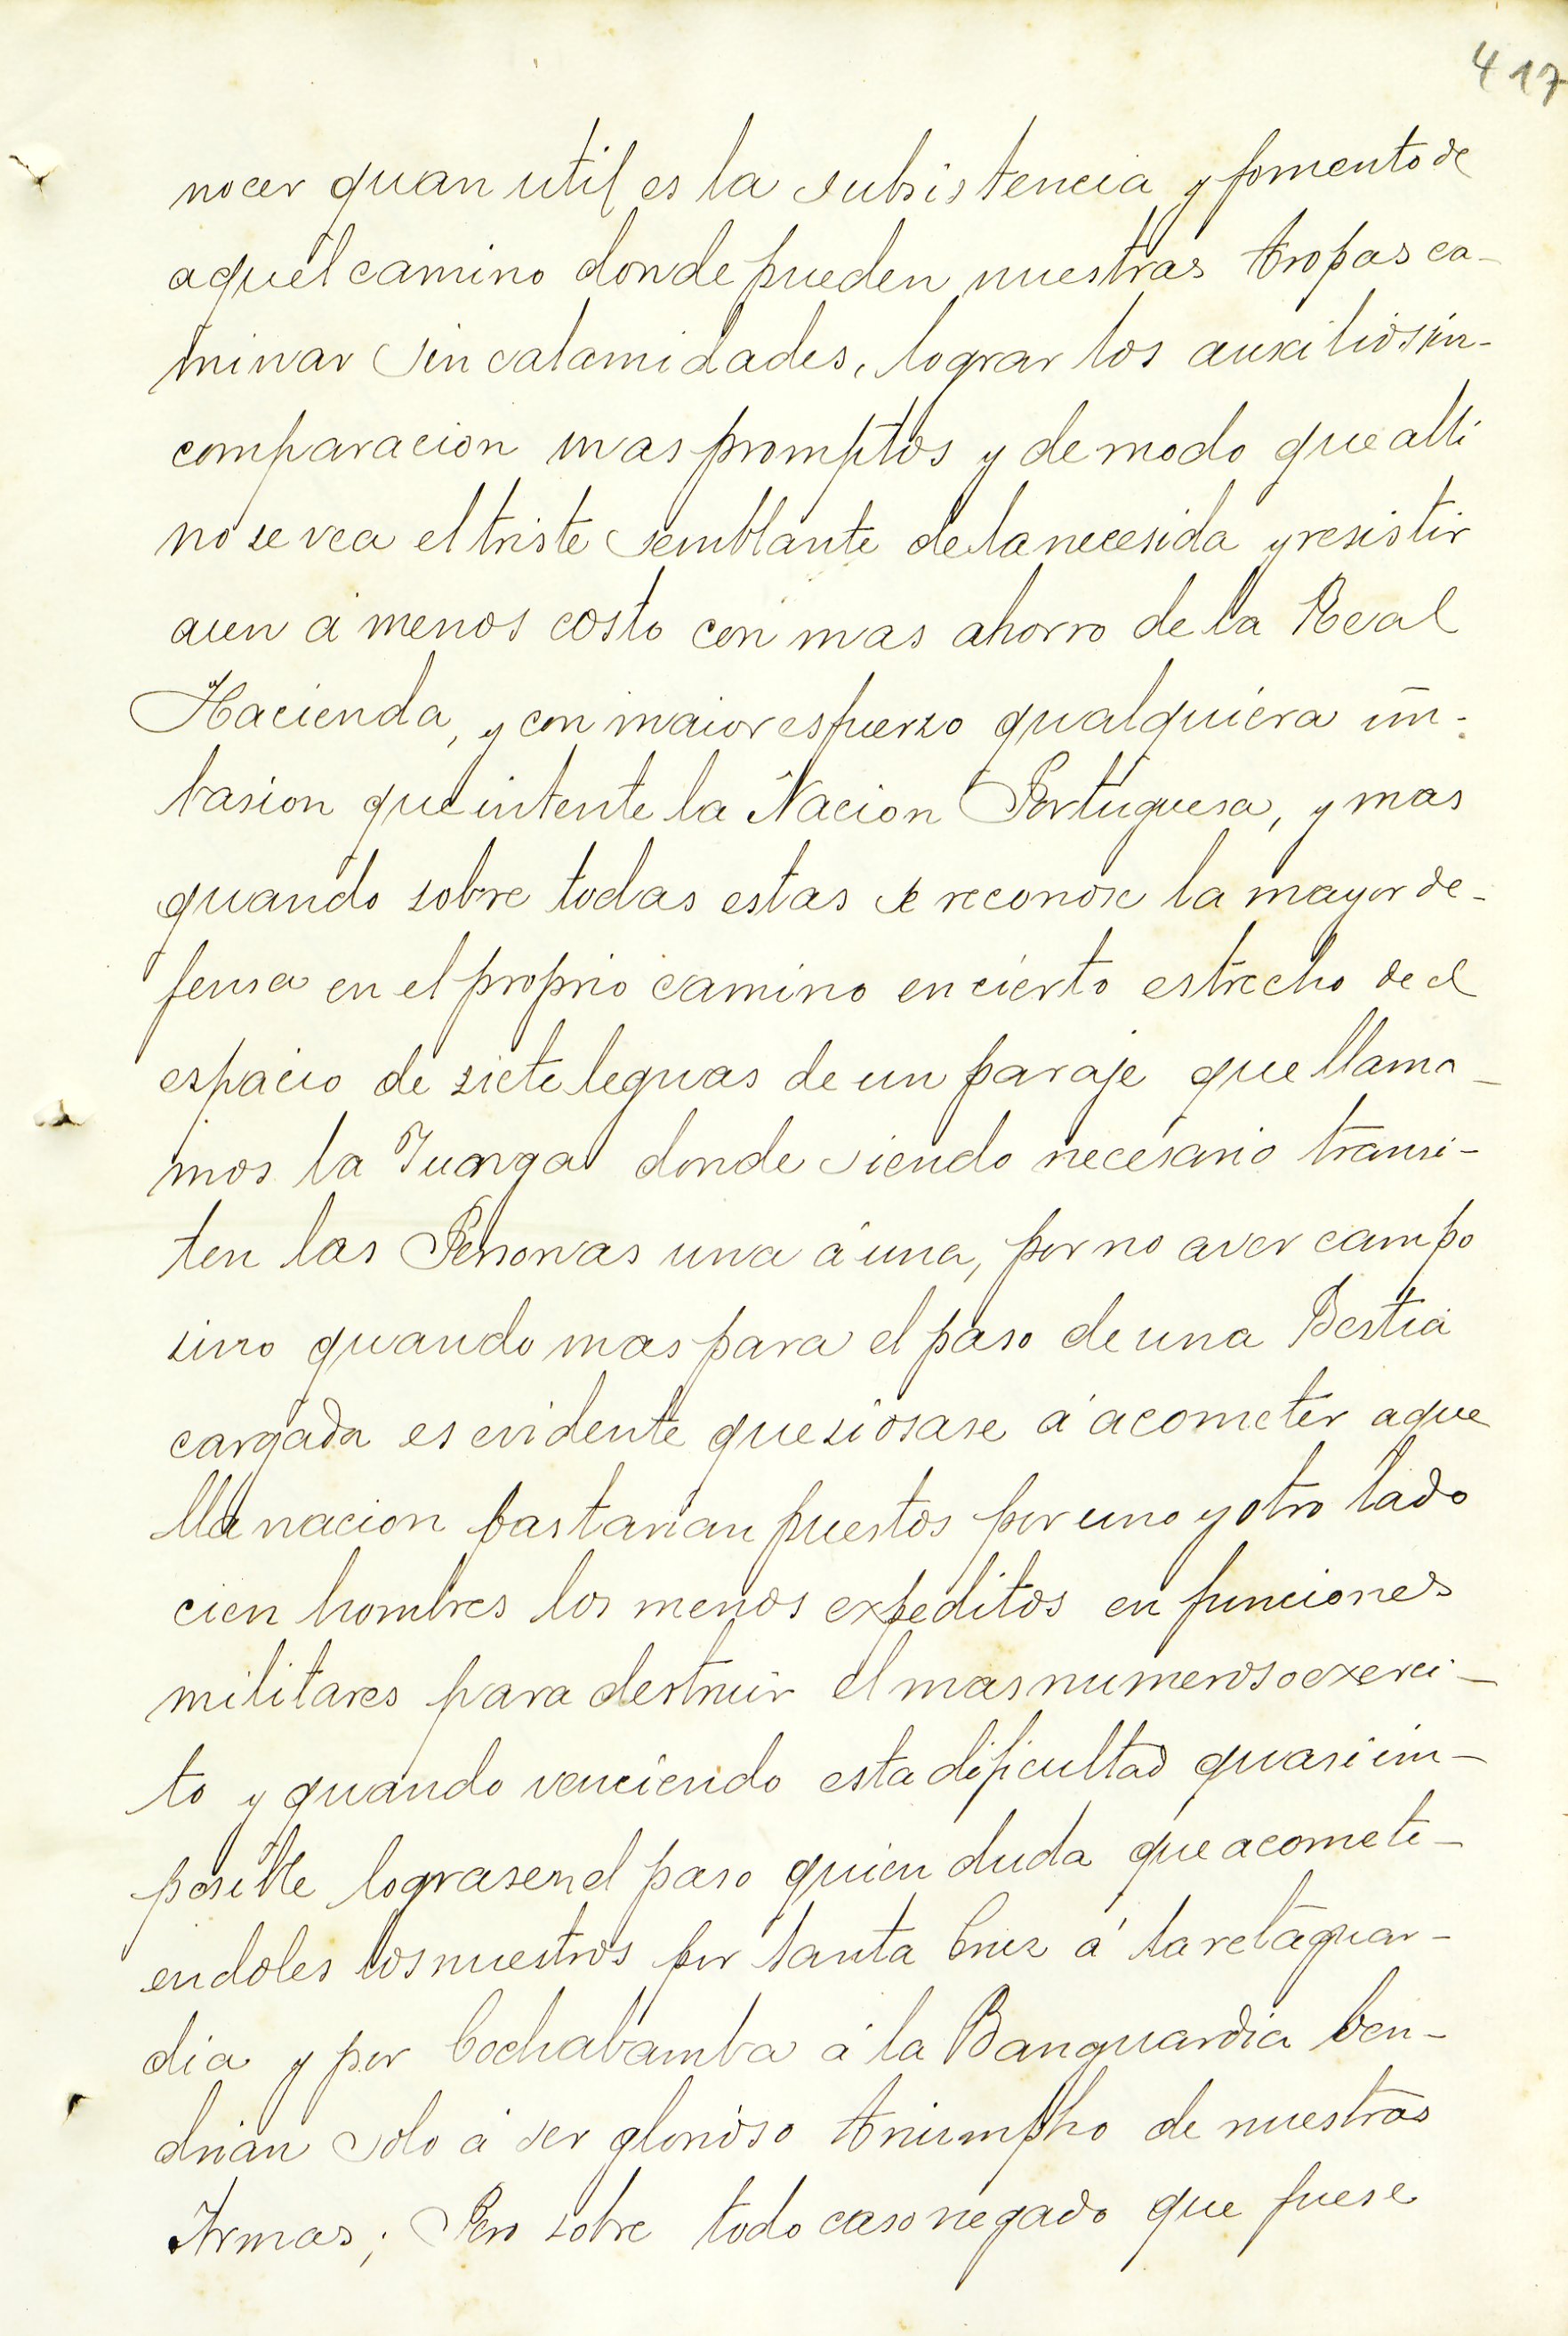 417
nocer quan util es la subsistencia y fomento de
aquel camino donde pueden nuestras tropas ca-
minar sin calamidades, lograr los auxilios sin-
comparacion mas promptos y de modo que alli
no se vea el triste semblante de la necesida y resistir
aun á menos costo con mas ahorro de la Real
Hacienda, y con maior esfuerzo qualquiera im-
basion que intente la Nacion Portuguesa, y mas
quando sobre todas estas se reconose la mayor de-
fensa en el proprio camino en cierto estrecho de el
espacio de siete leguas de un paraje que llama-
mos la Yunga donde siendo necesario transi-
ten las Personas una á una, por no aver campo
sino quando mas para el paso de una Bestia
cargada es evidente que si osase á acometer aque
lla nacion bastarian puestos por uno y otro lado
cien hombres los menos expeditos en funciones
militares para destruir el mas numeroso exerci-
to y quando venciendo esta dificultad quasi im-
posible lograsen el paso quien duda que acometi-
endoles los nuestros por Santa Cruz á la retaguar-
dia y por Cochabamba á la Banguardia ben-
drian solo á ser glorioso triumpho de nuestras
Armas; Pero sobre todo caso negado que fuese